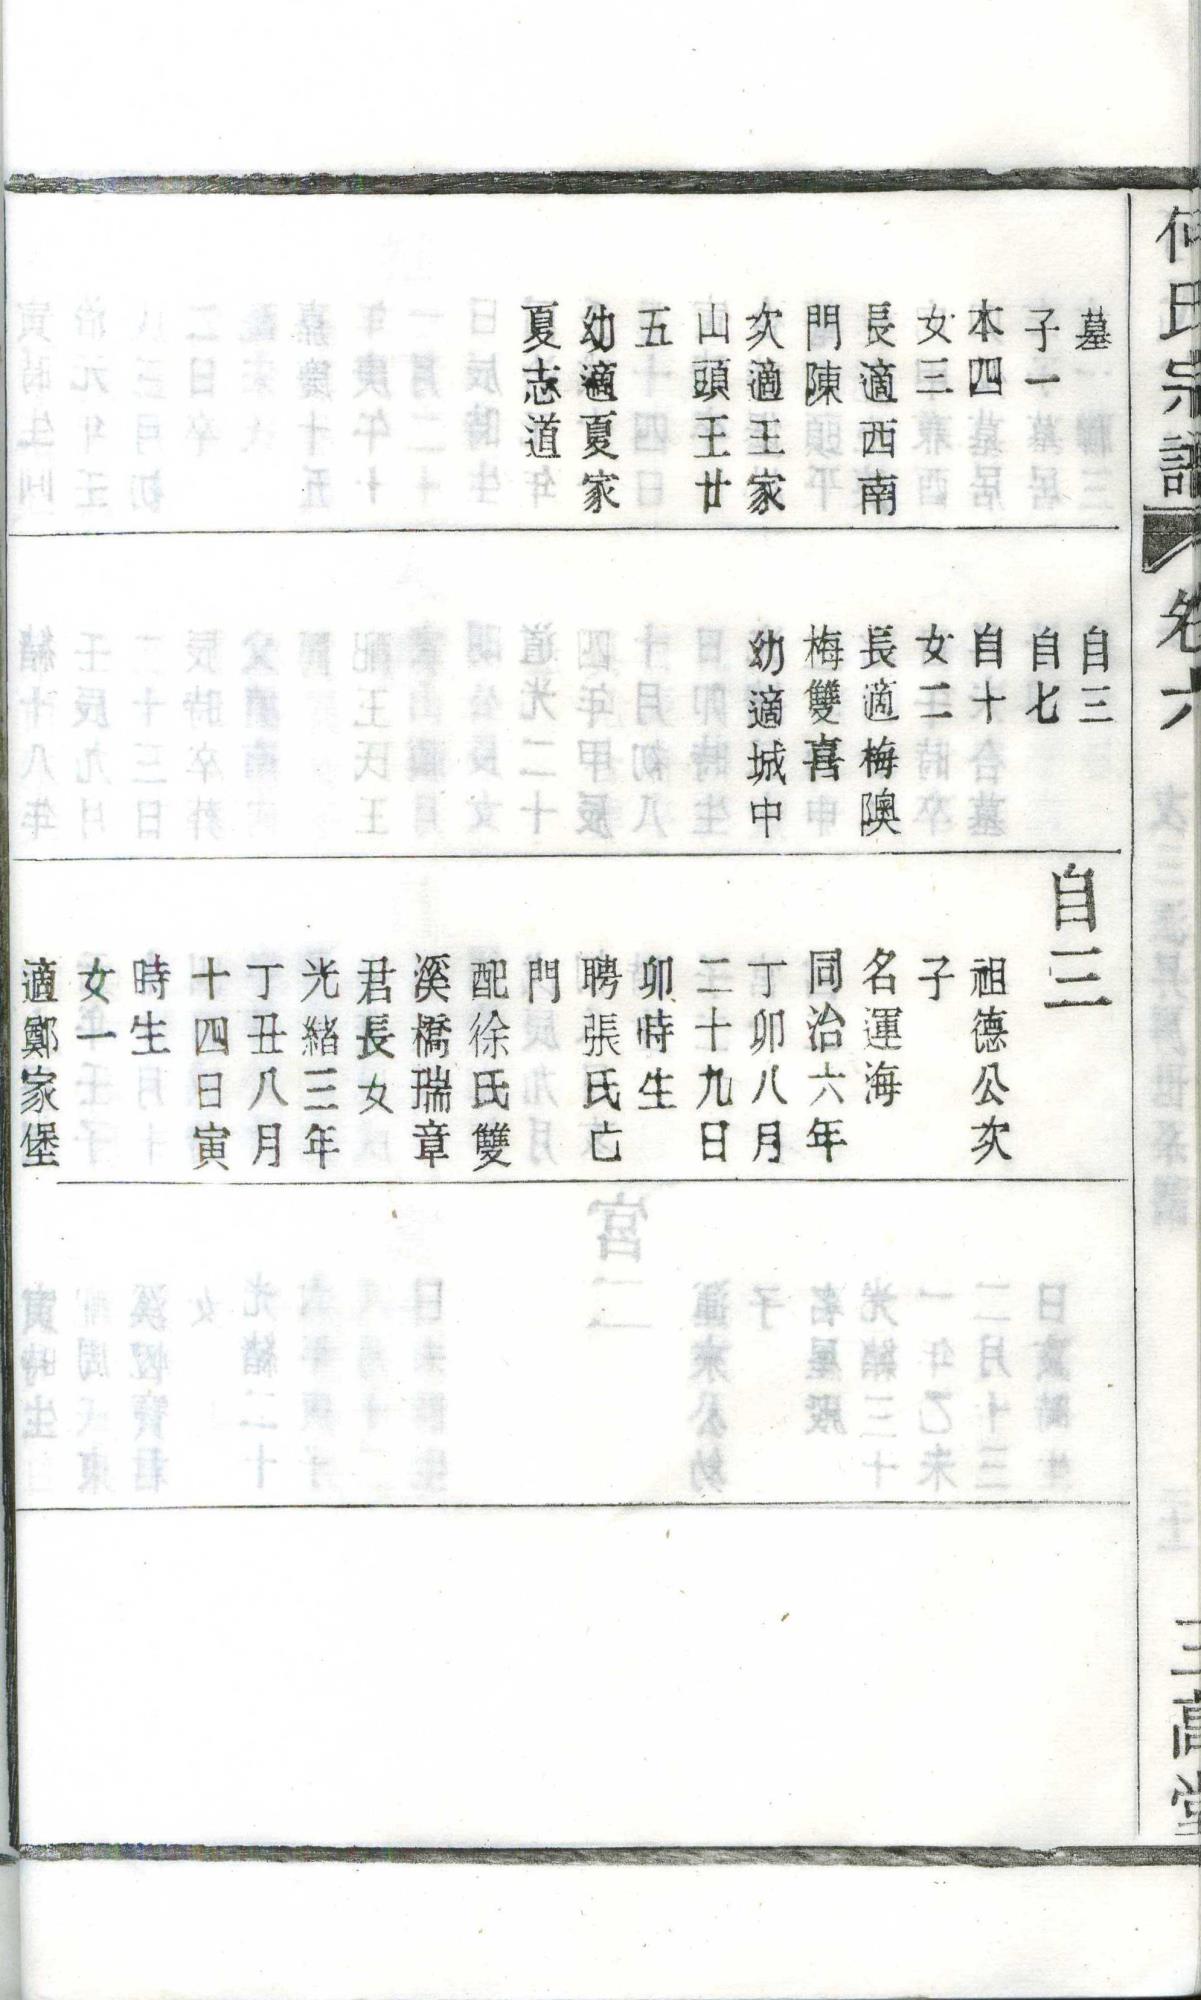 何氏宗譜
卷六
三高堂
墓
子一
本四
女三
長適西南
門陳
次適王家
山頭王廿
五
幼適夏家
夏志道
自三
自七
自十
女二
長適梅隩
梅雙喜
幼適城中
自三
祖德公次
子
名運海
同治六年
丁卯八月
二十九日
卯時生
聘張氏亡
門
配徐氏雙
溪橋瑞章
君長女
光緒三年
丁丑八月
十四日寅
時生
女一
適鄭家堡